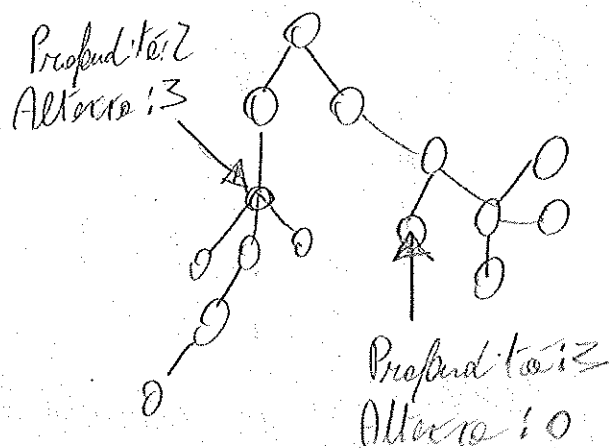 Profondità: 2
Altezza: 3
Profondità: 3
Altezza: 0